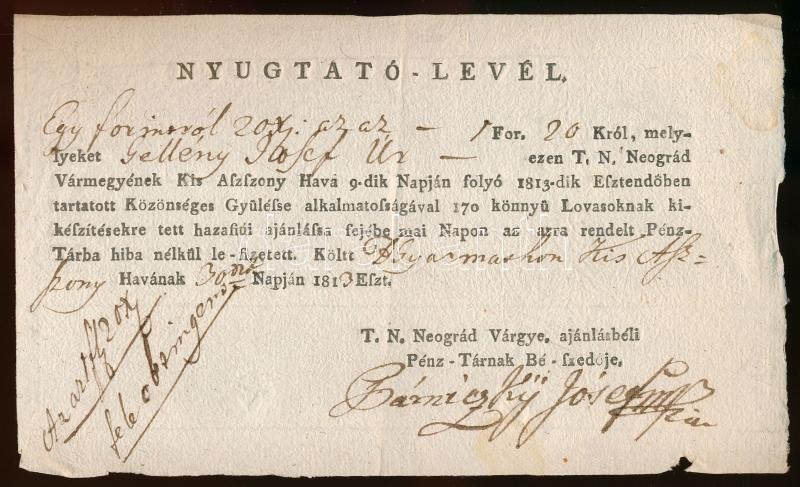 NYUGTATÓ-LEVÉL.
Egy forintról 20xj. az az — 1 For. 20 Król, mely-
lyeket Gellény Josef Úr — ezen T. N. Neográd
Vármegyének Kis Aszszony Hava 9-dik Napján folyó 1813-dik Esztendőben
tartatott Közönséges Gyűlésse alkalmatosságával 170 könnyű Lovasoknak ki-
készítésekre tett hazafiúi ajánlássa fejébe mai Napon az azra rendelt Pénz-
Tárba hiba nélkűl le-fizetett. Költt BGyarmathon Kis Asz=
szony Havának 30dik Napján 1813 Eszt.
T. N. Neográd Várgye. ajánlásbéli
Pénz-Tárnak Bé-szedője,
Bárniczkÿ Jósef
Az az f 20xj
fele